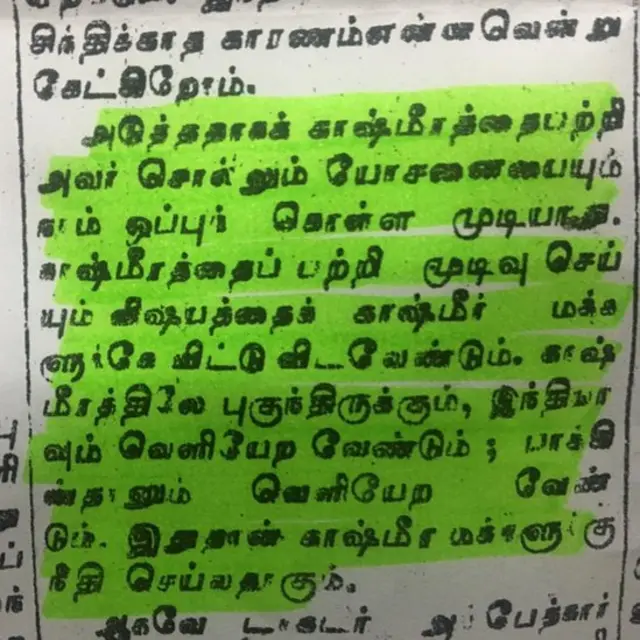 சிந்திக்காத காரணம்என்னவென்று
கேட்கிறோம்.
அடுத்ததாகக் காஷ்மீரத்தைபற்றி
அவர் சொல்லும் யோசனையையும்
நாம் ஒப்புக் கொள்ள முடியாது.
காஷ்மீரத்தைப் பற்றி முடிவு செய்
யும் விஷயத்தைக் காஷ்மீர் மக்க
ளுக்கே விட்டுவிடவேண்டும். காஷ்
மீரத்திலே புகுந்திருக்கும், இந்தியா
வும் வெளியேற வேண்டும் ; பாக்கி
ஸ்தானும் வெளியேற வேண்
டும். இதுதான் காஷ்மீர மக்களுக்கு
நீதி செய்வதாகும்.
ஆகவே டாக்டர் அம்பேத்கார்